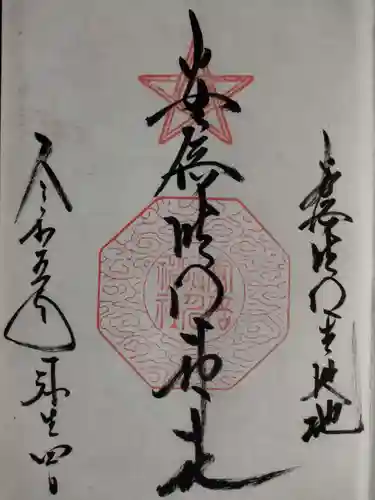 安倍晴明生誕地
安倍晴明神社
令和五年弥生四日